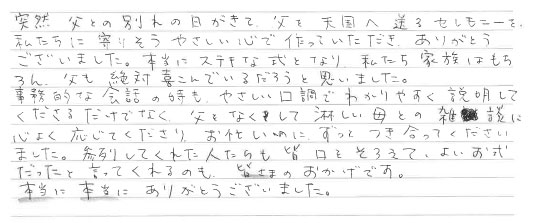 突然 父との別れの日がきて、父を天国へ送るセレモニーを、
私たちに寄りそうやさしい心で作っていただき、ありがとう
ございました。本当にステキな式となり、私たち家族はもち
ろん、父も絶対喜んでいるだろうと思いました。
事務的な会話の時も、やさしい口調でわかりやすく説明して
くださるだけでなく、父をなくして淋しい母との雑談に
心よく応じてくださり、お忙しいのに、ずっとつき合ってください
ました。参列してくれた人たちも皆口をそろえて、よいお式
だったと言ってくれるのも、皆さまのおかげです。
本当に本当にありがとうございました。